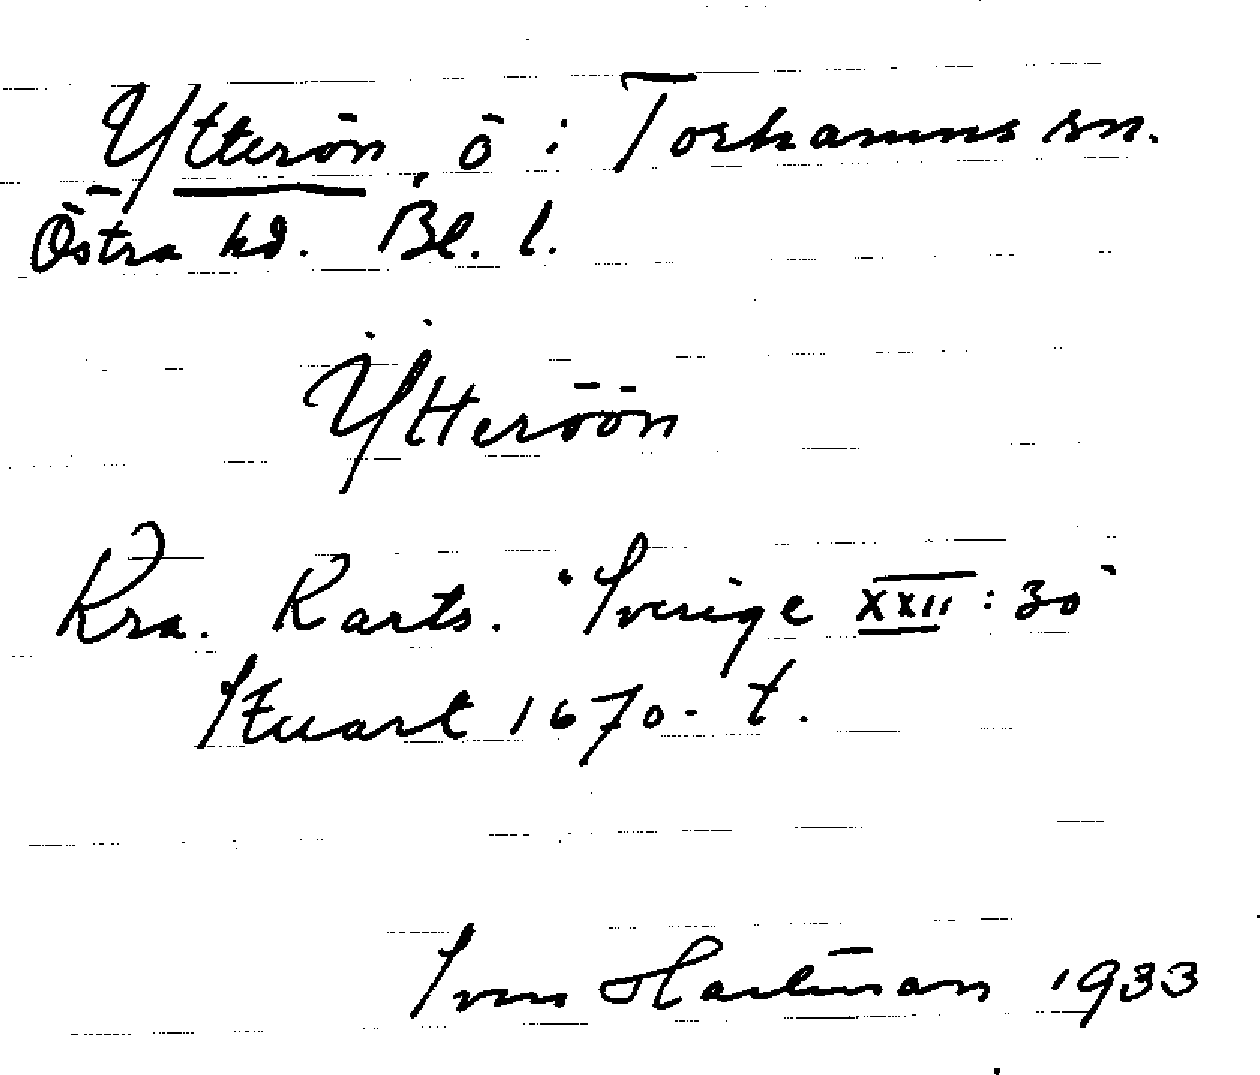 Ytterön, ö i Torhamns sn.
Östra hd. Bl. l.
Ÿtteröön
Kra. Karts. "Sverige XXII: 30"
Stuart 1670- t.
Sven Hartman 1933